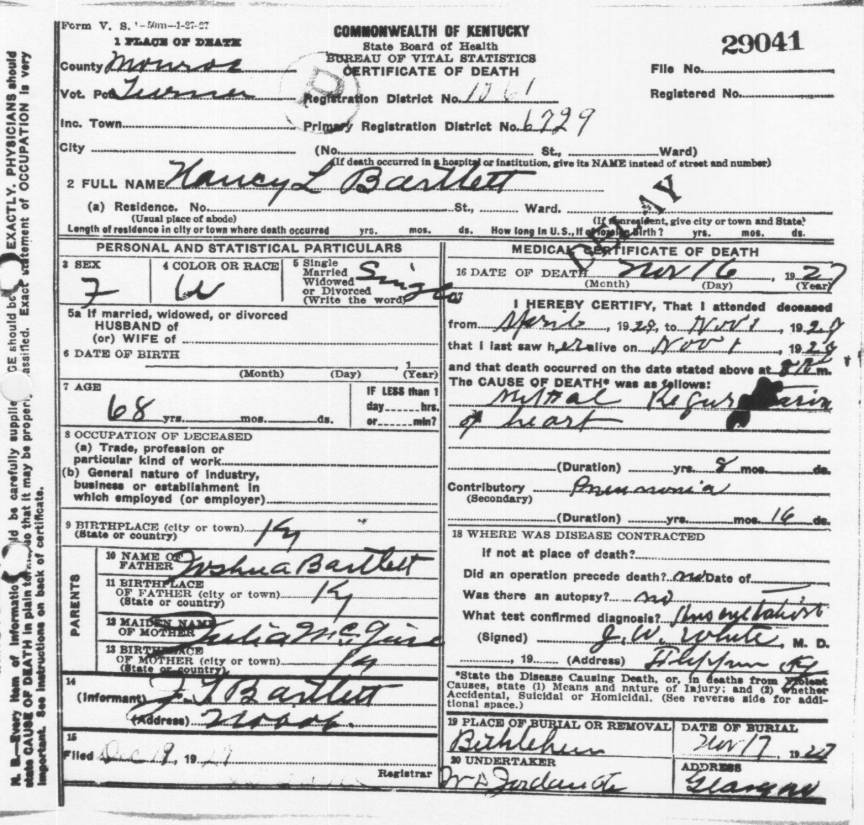 Form V. S. 1-50m-1-27-27
COMMONWEALTH OF KENTUCKY
State Board of Health
BUREAU OF VITAL STATISTICS
CERTIFICATE OF DEATH
29041
File No.
Registered No.
1 PLACE OF DEATH
County Monroe
Vot. Pct Turner
Registration District No. 1061
Inc. Town
Primary Registration District No. 6729
City (No. St., Ward)
(If death occurred in a hospital or institution, give its NAME instead of street and number)
2 FULL NAME Nancy L Bartlett
(a) Residence. No. St., Ward.
(Usual place of abode) (If nonresident, give city or town and State)
Length of residence in city or town where death occurred yrs. mos. ds. How long in U.S., if of foreign birth? yrs. mos. ds.
PERSONAL AND STATISTICAL PARTICULARS
3 SEX
F
4 COLOR OR RACE
W
5 Single
Married
Widowed
or Divorced
(Write the word)
Single
5a If married, widowed, or divorced
HUSBAND of
(or) WIFE of
6 DATE OF BIRTH
1
(Month) (Day) (Year)
7 AGE
68 yrs. mos. ds.
IF LESS than 1
day hrs.
or min?
8 OCCUPATION OF DECEASED
(a) Trade, profession or
particular kind of work
(b) General nature of industry,
business or establishment in
which employed (or employer)
9 BIRTHPLACE (city or town) Ky
(State or country)
PARENTS
10 NAME OF
FATHER Joshua Bartlett
11 BIRTHPLACE
OF FATHER (city or town) Ky
(State or country)
12 MAIDEN NAME
OF MOTHER Julia McGuire
13 BIRTHPLACE
OF MOTHER (city or town) Ky
(State or country)
14
(Informant) J. T. Bartlett
(Address) Nobob.
15
Filed Dec 19, 1927
Registrar
DELAY
MEDICAL CERTIFICATE OF DEATH
16 DATE OF DEATH Nov 16 1927
(Month) (Day) (Year)
17
I HEREBY CERTIFY, That I attended deceased
from April, 1928, to Nov 1, 1928
that I last saw her alive on Nov 1, 1928
and that death occurred on the date stated above at m.
The CAUSE OF DEATH* was as follows:
Mitral
of heart
(Duration) yrs. 8 mos. ds.
Contributory Pneumonia
(Secondary)
(Duration) yrs. mos. 16 ds.
18 WHERE WAS DISEASE CONTRACTED
If not at place of death?
Did an operation precede death? no Date of
Was there an autopsy? no
What test confirmed diagnosis?
(Signed) J. W. White, M. D.
, 19 (Address) Flippin Ky
*State the Disease Causing Death, or, in deaths from Violent
Causes, state (1) Means and nature of Injury; and (2) whether
Accidental, Suicidal or Homicidal. (See reverse side for addi-
tional space.)
19 PLACE OF BURIAL OR REMOVAL
Bethlehem
DATE OF BURIAL
Nov 17 1927
20 UNDERTAKER
ADDRESS
Glasgow